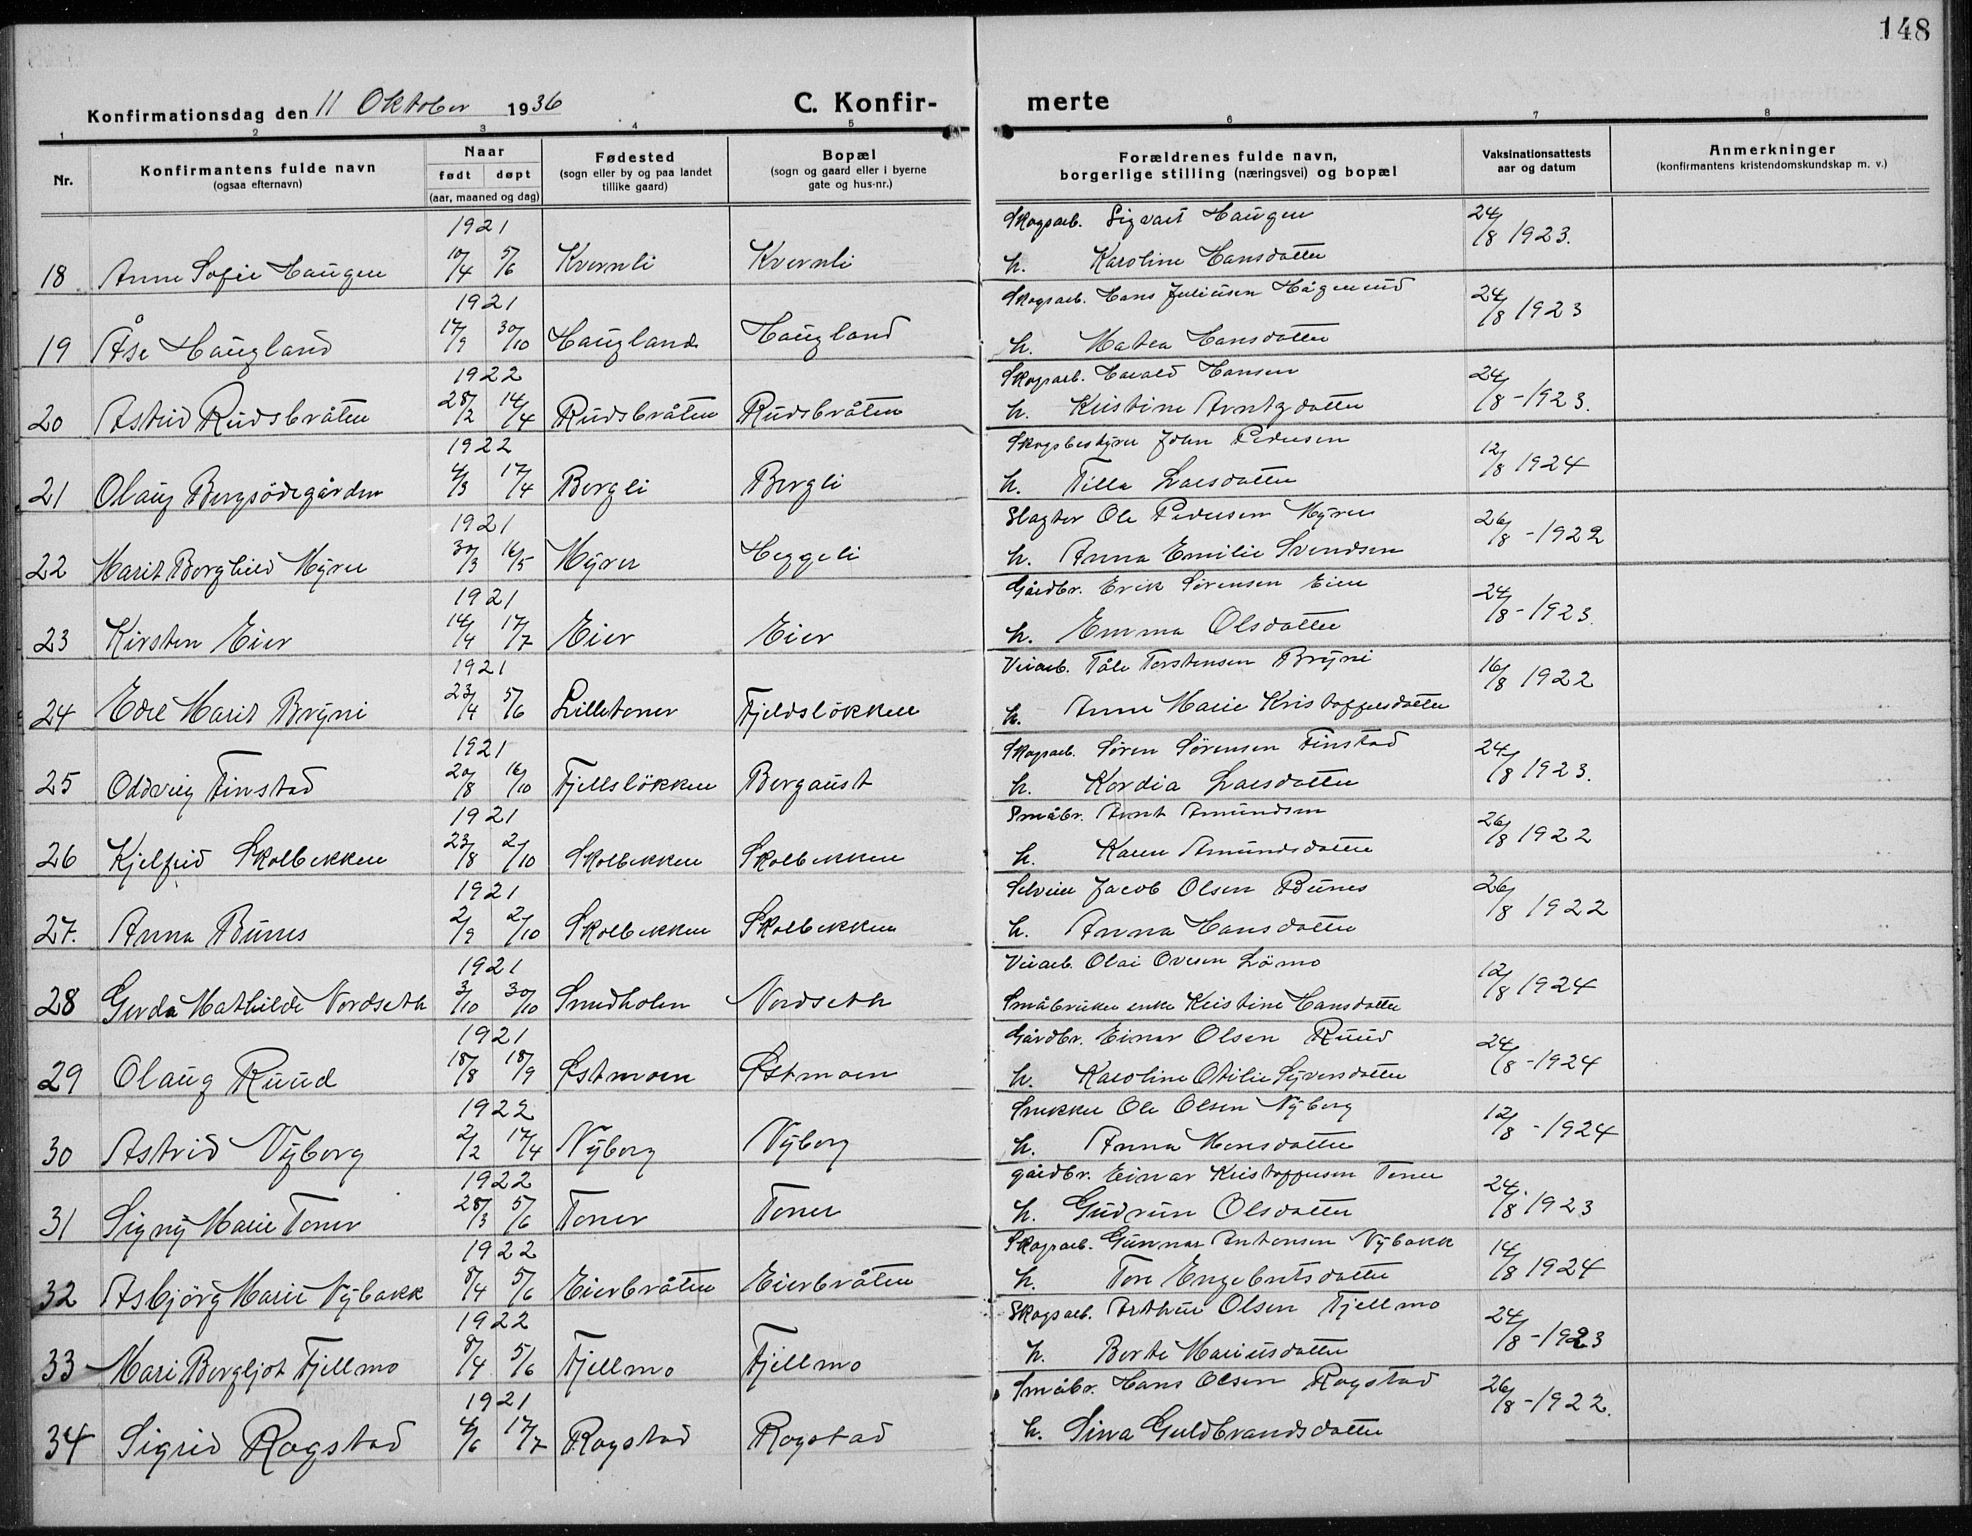 148
Konfirmationsdag den 11 Oktober 1936 C. Konfir- merte
1 2 3 4 5 6 7 8
Nr. Konfirmantens fulde navn (ogsaa efternavn) Naar født døpt (aar, maaned og dag) Fødested (sogn eller by og paa landet tillike gaard) Bopæl (sogn og gaard eller i byerne gate og hus-nr.) Forældrenes fulde navn, borgerlige stilling (næringsvei) og bopæl Vaksinationsattests aar og datum Anmerkninger (konfirmantens kristendomskundskap m. v.)
1921 Skogsarb. Sigvart Haugen 24/8 1923.
18 Anne Sofie Haugen 10/4 5/6 Kvernli Kvernli h. Karoline Hansdatter
1921 Skogsarb. Hans Juliusen Hågenrud 24/8 1923
19 Åse Haugland 17/9 30/10 Haugland Haugland h. Matea Hansdatter
1922 Skogsarb. Harald Hansen 24/8 - 1923.
20 Astrid Rudsbråten 28/2 14/4 Rudsbråten Rudsbråten h. Kristine Arntzdatter
1922 Skogsbestyrer John Pedersen 12/8 1924
21 Olaug Bergsödegården 4/3 17/4 Bergli Bergli h. Tilla Larsdatter
1921 Slagter Ole Pedersen Myrer 26/8 - 1922
22 Marit Borghild Myrer 30/3 16/5 Myrer Heggeli h. Anna Emilie Svendsen
1921 Gårdbr. Erik Sørensen Eier 24/8 - 1923.
23 Kirsten Eier 14/4 17/7 Eier Eier h. Emma Olsdatter
1921 Veiarb. Tåle Torstensen Bryni 16/8 1922
24 Edel Marit Bryni 23/4 5/6 Lilletoner Fjeldsløkken h. Anne Marie Kristoffersdatter
1921 Skogsarb. Søren Sørensen Finstad 24/8 1923.
25 Oddveig Finstad 20/8 16/10 Fjellsløkken Bergaust h. Kordia Larsdatter
1921 Småbr. Arnt Amundsen 26/8 1922
26 Kjelfrid Skolbekken 23/8 2/10 Skolbekken Skolbekken h. Karen Amundsdatter
1921 Selveier Jacob Olsen Bunes 26/8 1922
27. Anna Bunes 2/9 2/10 Skolbekken Skolbekken h. Anna Hansdatter
1921 Veiarb. Olai Ovesen Lømo 12/8 1924
28 Gerda Mathilde Nordseth 3/10 30/10 Smedholen Nordseth Småbruker enke Kristine Hansdatter
1921 Gårdbr. Einar Olsen Ruud 24/8 - 1924
29 Olaug Ruud 18/8 18/9 Østmoen Østmoen h. Karoline Otilie Syversdatter
1922 Snekker Ole Olsen Nyborg 12/8 - 1924
30 Astrid Nyborg 2/2 17/4 Nyborg Nyborg h. Anna Monsdatter
1922 gårdbr. Einar Kristoffersen Toner 24/8 1923
31 Signy Marie Toner 28/3 5/6 Toner Toner h. Gudrun Olsdatter
1922 Skogsarb. Gunnar Antonsen Nybakk 14/8 1924
32 Asbjörg Marie Nybakk 8/4 5/6 Eierbråten Eierbråten h. Tore Engebretsdatter
1922 Skogsarb. Arthur Olsen Fjellmo 24/8 - 1923
33 Mari Bergljot Fjellmo 8/4 5/6 Fjellmo Fjellmo h. Berte Mariusdatter
1921 Småbr. Hans Olsen Rogstad 26/8 - 1922.
34 Sigrid Rogstad 4/6 17/7 Rogstad Rogstad h. Sina Guldbrandsdatter